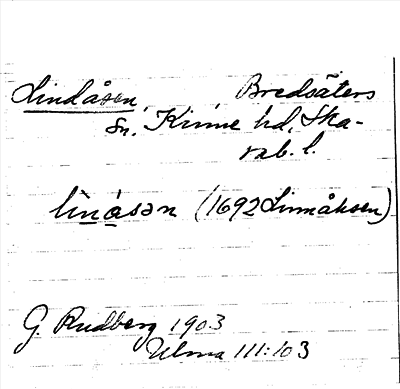 Lindåsen, Bredsäters
sn, Kinne hd, Ska-
rab. l.
lìnásən (1692 Linnåhsen)
G Rudberg 1903
Ulma 111:103